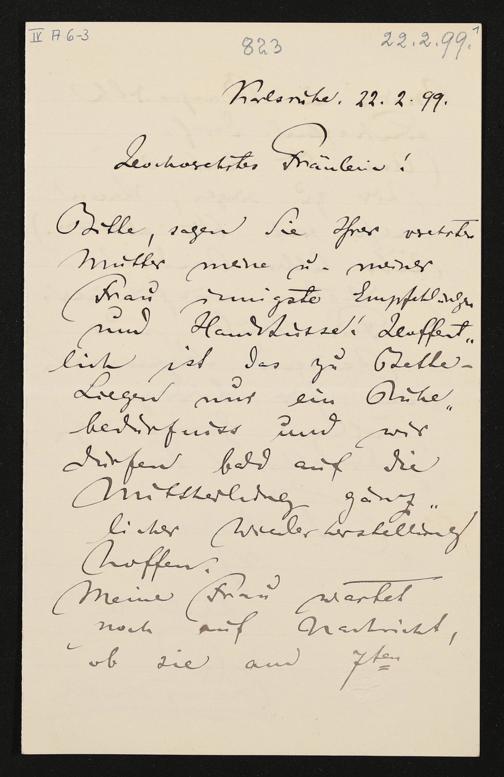 IV A 6-3
823
22.2.99.¹
Karlsruhe. 22. 2. 99.
Hochverehrtes Fräulein!
Bitte, sagen Sie Ihrer verehrten
Mutter meine u. meiner
Frau innigste Empfehlungen
und Handküsse! Hoffent„
lich ist das zu Bette-
Liegen nur ein Ruhe„
bedürfniss und wir
dürfen bald auf die
Mittheilung gänz„
licher Wiederherstellung
hoffen.
Meine Frau wartet
noch auf Nachricht,
ob sie am 7ten